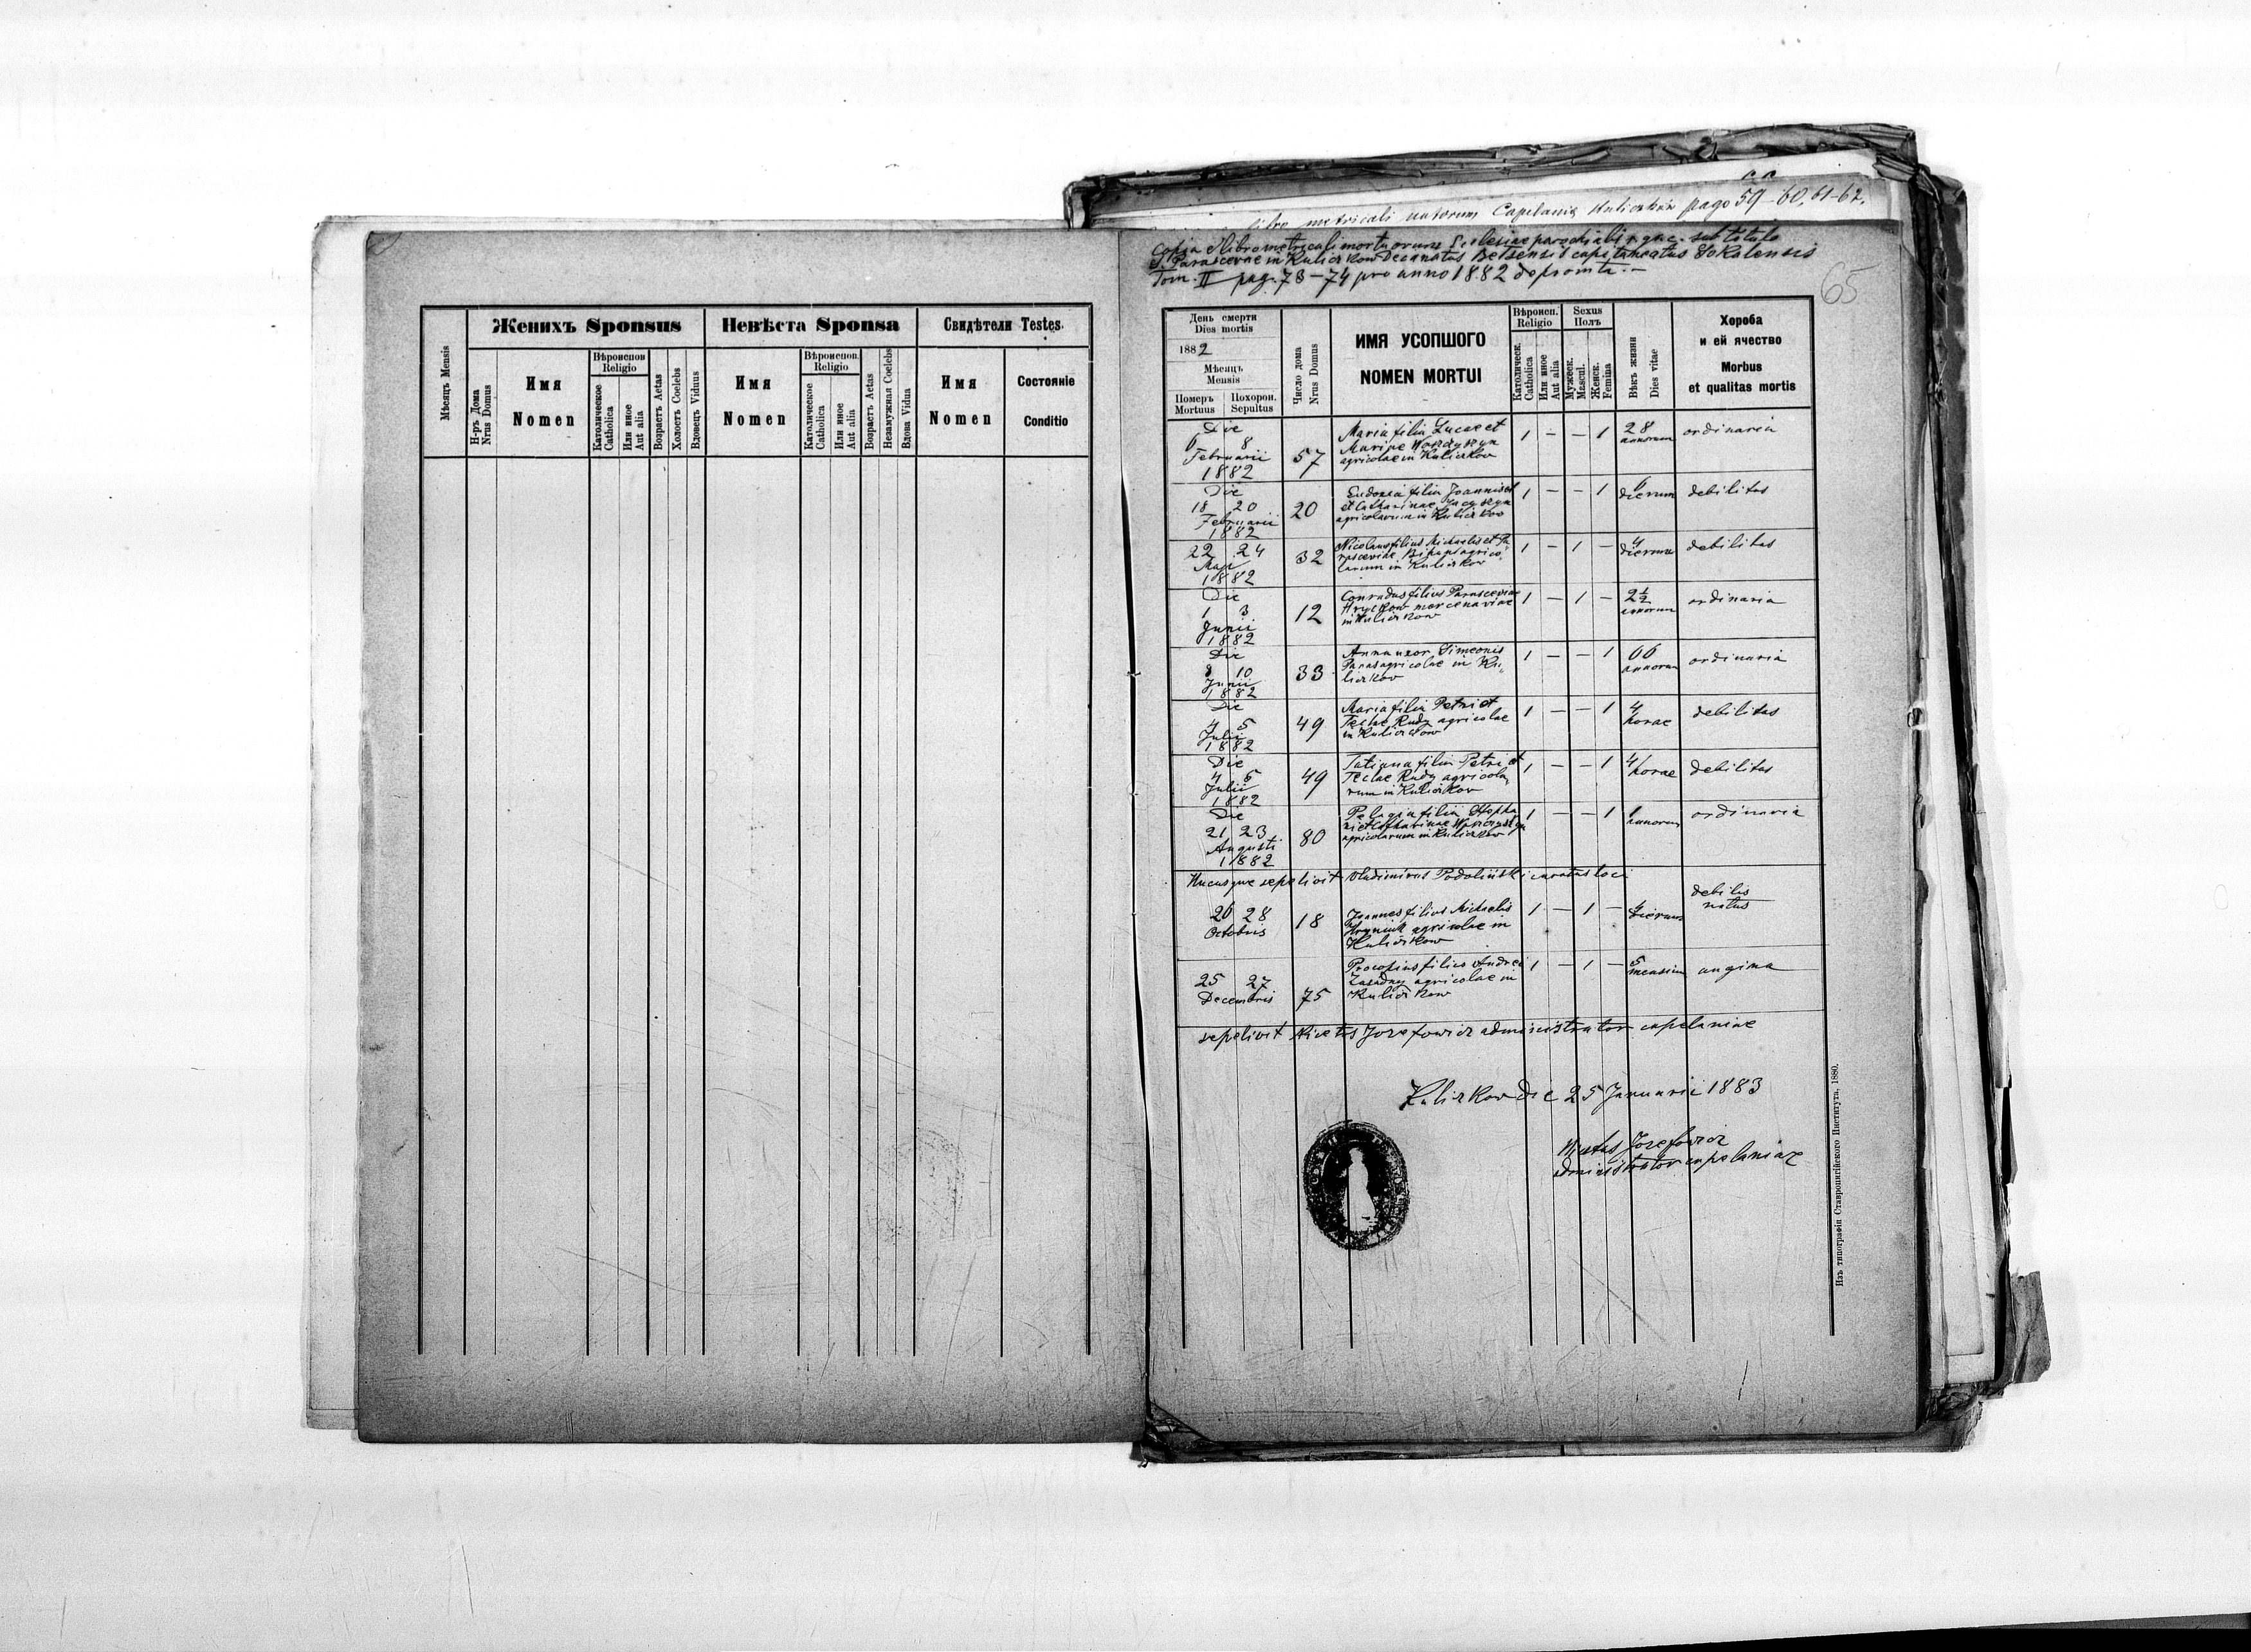 libro metricali natorum Capelaniæ Kuliczków pago 59-60, 61-62.
Copia e libro metricali mortuorum Ecclesiae parochialis r. gr. c. sub titulo
S. Parascevae in Kuliczkow Decanatus Belzensis capitaneatus Sokalensis
Tom. II pag. 73-74 pro anno 1882 depromta.-
65
Мѣсяцъ Mensis
Женихъ Sponsus
Н-ръ Дома Nrus Domus
Имя
Nomen
Вѣроиспов
Religio
Католическое Catholica
Или иное Aut alia
Возрастъ Aetas
Холостъ Coelebs
Вдовецъ Viduus
Невѣста Sponsa
Имя
Nomen
Вѣроиспов.
Religio
Католическое Catholica
Или иное Aut alia
Возрастъ Aetas
Незамужная Coelebs
Вдова Vidua
Свидѣтели Testes.
Имя
Nomen
Состоянiе
Conditio
День смерти
Dies mortis
1882
Мѣсяцъ
Mensis
Померъ Mortuus
Похорон. Sepultus
Число дома Nrus Domus
ИМЯ УСОПШОГО
NOMEN MORTUI
Вѣроисп.
Religio
Католическ. Catholica
Или иное Aut alia
Sexus
Полъ
Мужеск. Mascul.
Женск. Femina
Вѣкъ жизни Dies vitae
Хороба
и ей ячество
Morbus
et qualitas mortis
Die
6 8
Februarii
1882
57
Maria filia Lucae et
Mariae
agricolae in Kuliczkow
1 - - 1
28
annorum
ordinaria
Die
18 20
Februarii
1882
20
Eudoxia filia Joannis et
et Catharinae
agricolarum in Kuliczkow
1 - - 1
6
dierum
debilitas
22 24
Maji
1882
32
Nicolaus filius Michaelis et Pa
rasceviae agrico-
larum in Kuliczkow
1 - 1 -
4
dierum
debilitas
Die
1 3
Junii
1882
12
Conradus filius Parasceviae
mercenariae
in Kuliczkow
1 - 1 -
2 1/2
annorum
ordinaria
Die
8 10
Junii
1882
33
Anna uxor Simeonis
Panas agricolae in Ku-
liczkow
1 - - 1
66
annorum
ordinaria
Die
4 5
Julii
1882
49
Maria filia Petri et
Teclae Rudy agricolae
in Kuliczkow
1 - - 1
4
horae
debilitas
Die
4 5
Julii
1882
49
Tatiana filia Petri et
Teclae Rudy agricola-
rum in Kuliczkow
1 - - 1
4
horae
debilitas
Die
21 23
Augusti
1882
80
Pelagia filia Stepha
ni et Catharinae
agricolarum in Kuliczkow
1 - - 1
1
annorum
ordinaria
Hucusque sepelivit Vladimirus Podoliński curatus loci
26 28
Octobris
18
Joannes filius Michaelis
Hryniuk agricolae in
Kuliczkow
1 - 1 -
4
dierum
debilis
natus
25 27
Decembris
75
Procopius filius Andrei
Zasadny agricolae in
Kuliczkow
1 - 1 -
5
mensium
angina
sepelivit Nicetas Jozefowicz administrator capelaniae
Kuliczkow die 25 Januarii 1883
Nicetas Jozefowicz
administrator capelaniae
Изъ типографiи Ставропигiйского Института, 1880.